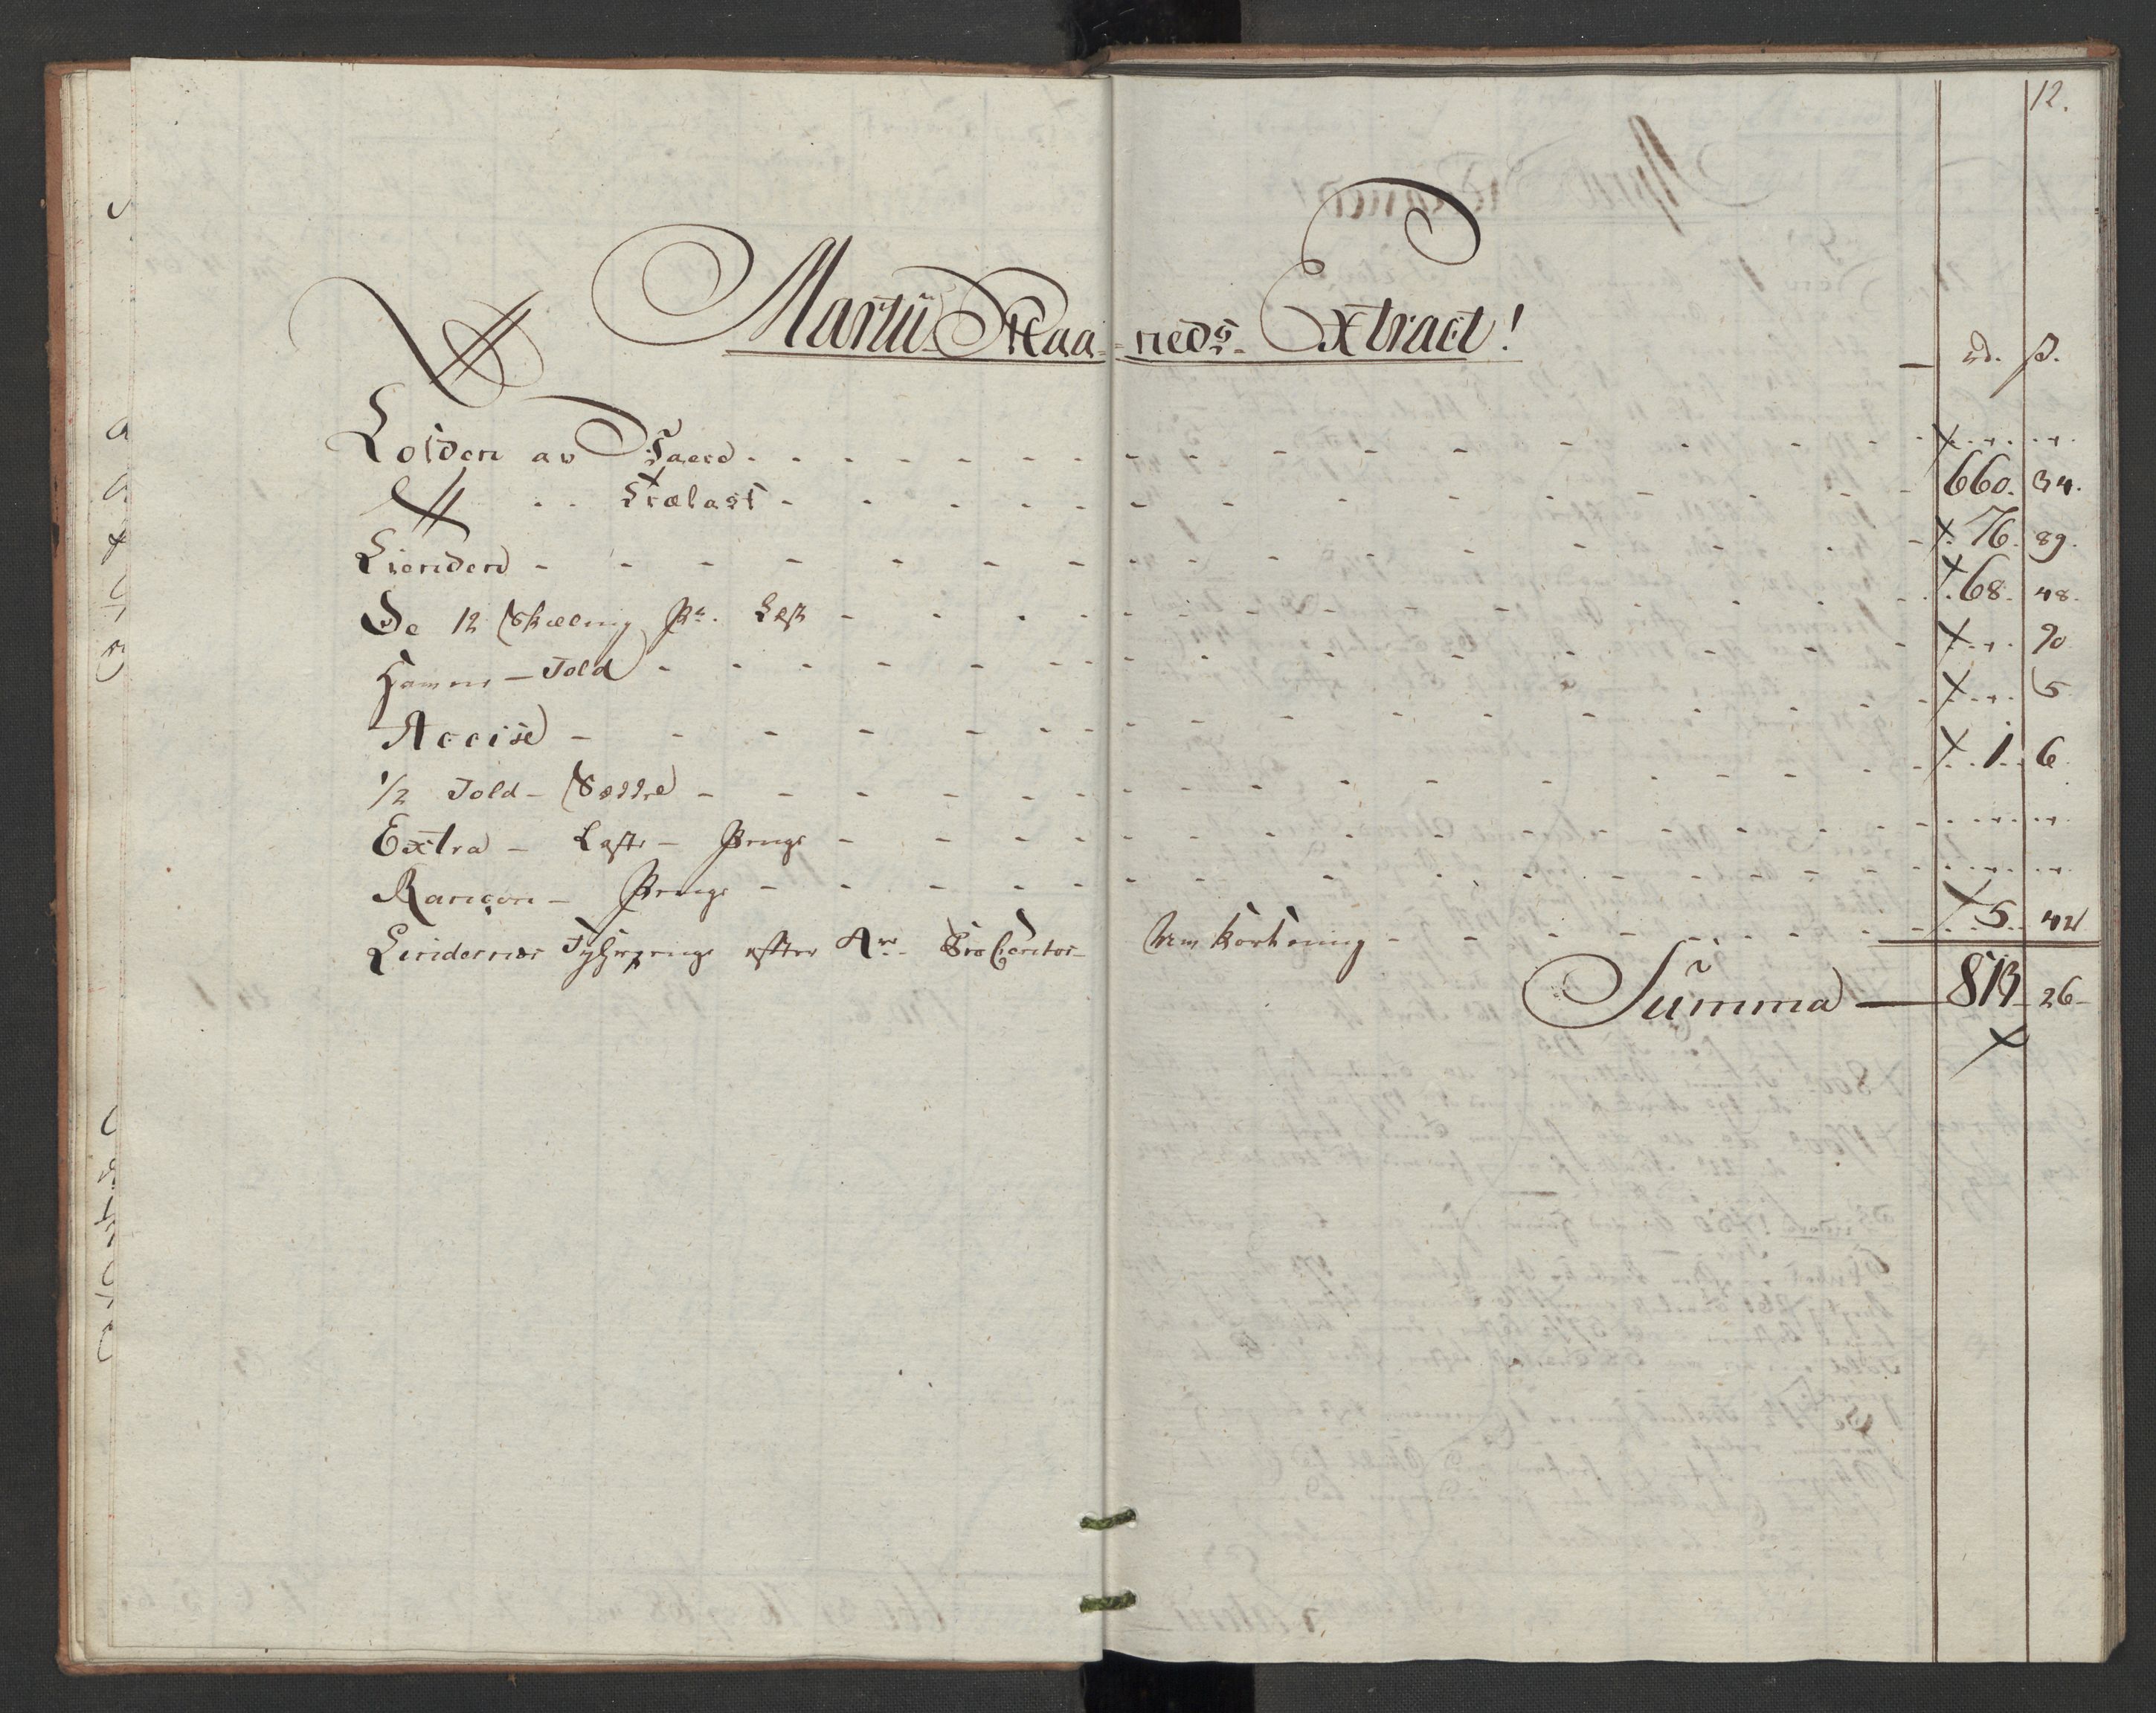 12.
Martii Maa-neds Extract!
rd. ß.
Tolden av
Trælast 660. 34.
Tienden 76. 89.
De 12 Skilling Pr. Læst 68. 48.
Havne-Told 90
Accise 5
1/2 Told-Sedle 1. 6
Extra-Læste-Penge
Rançon-Penge
Lindesnæs Fyhrpenge efter Procentos kortning 5. 42
Summa 813 26